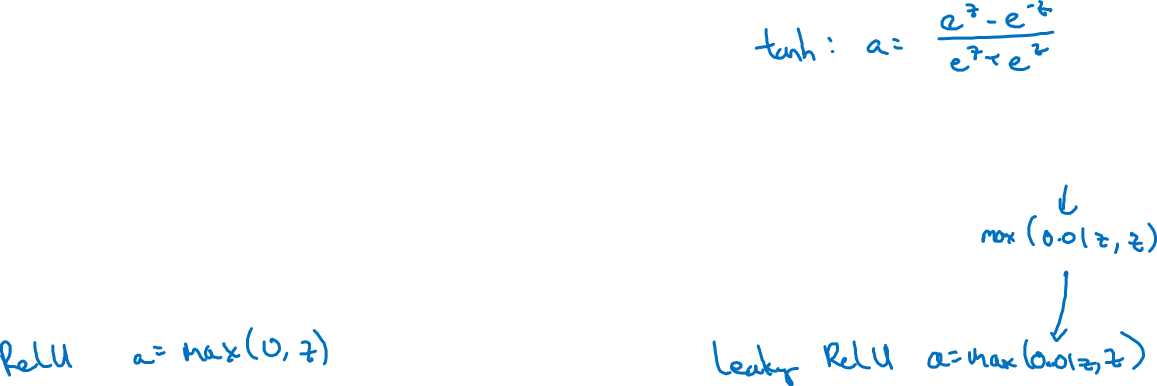 tanh: a = (e^z - e^-z) / (e^z + e^z)
max(0.01z, z)
ReLU a = max(0, z)
Leaky ReLU a = max(0.01z, z)